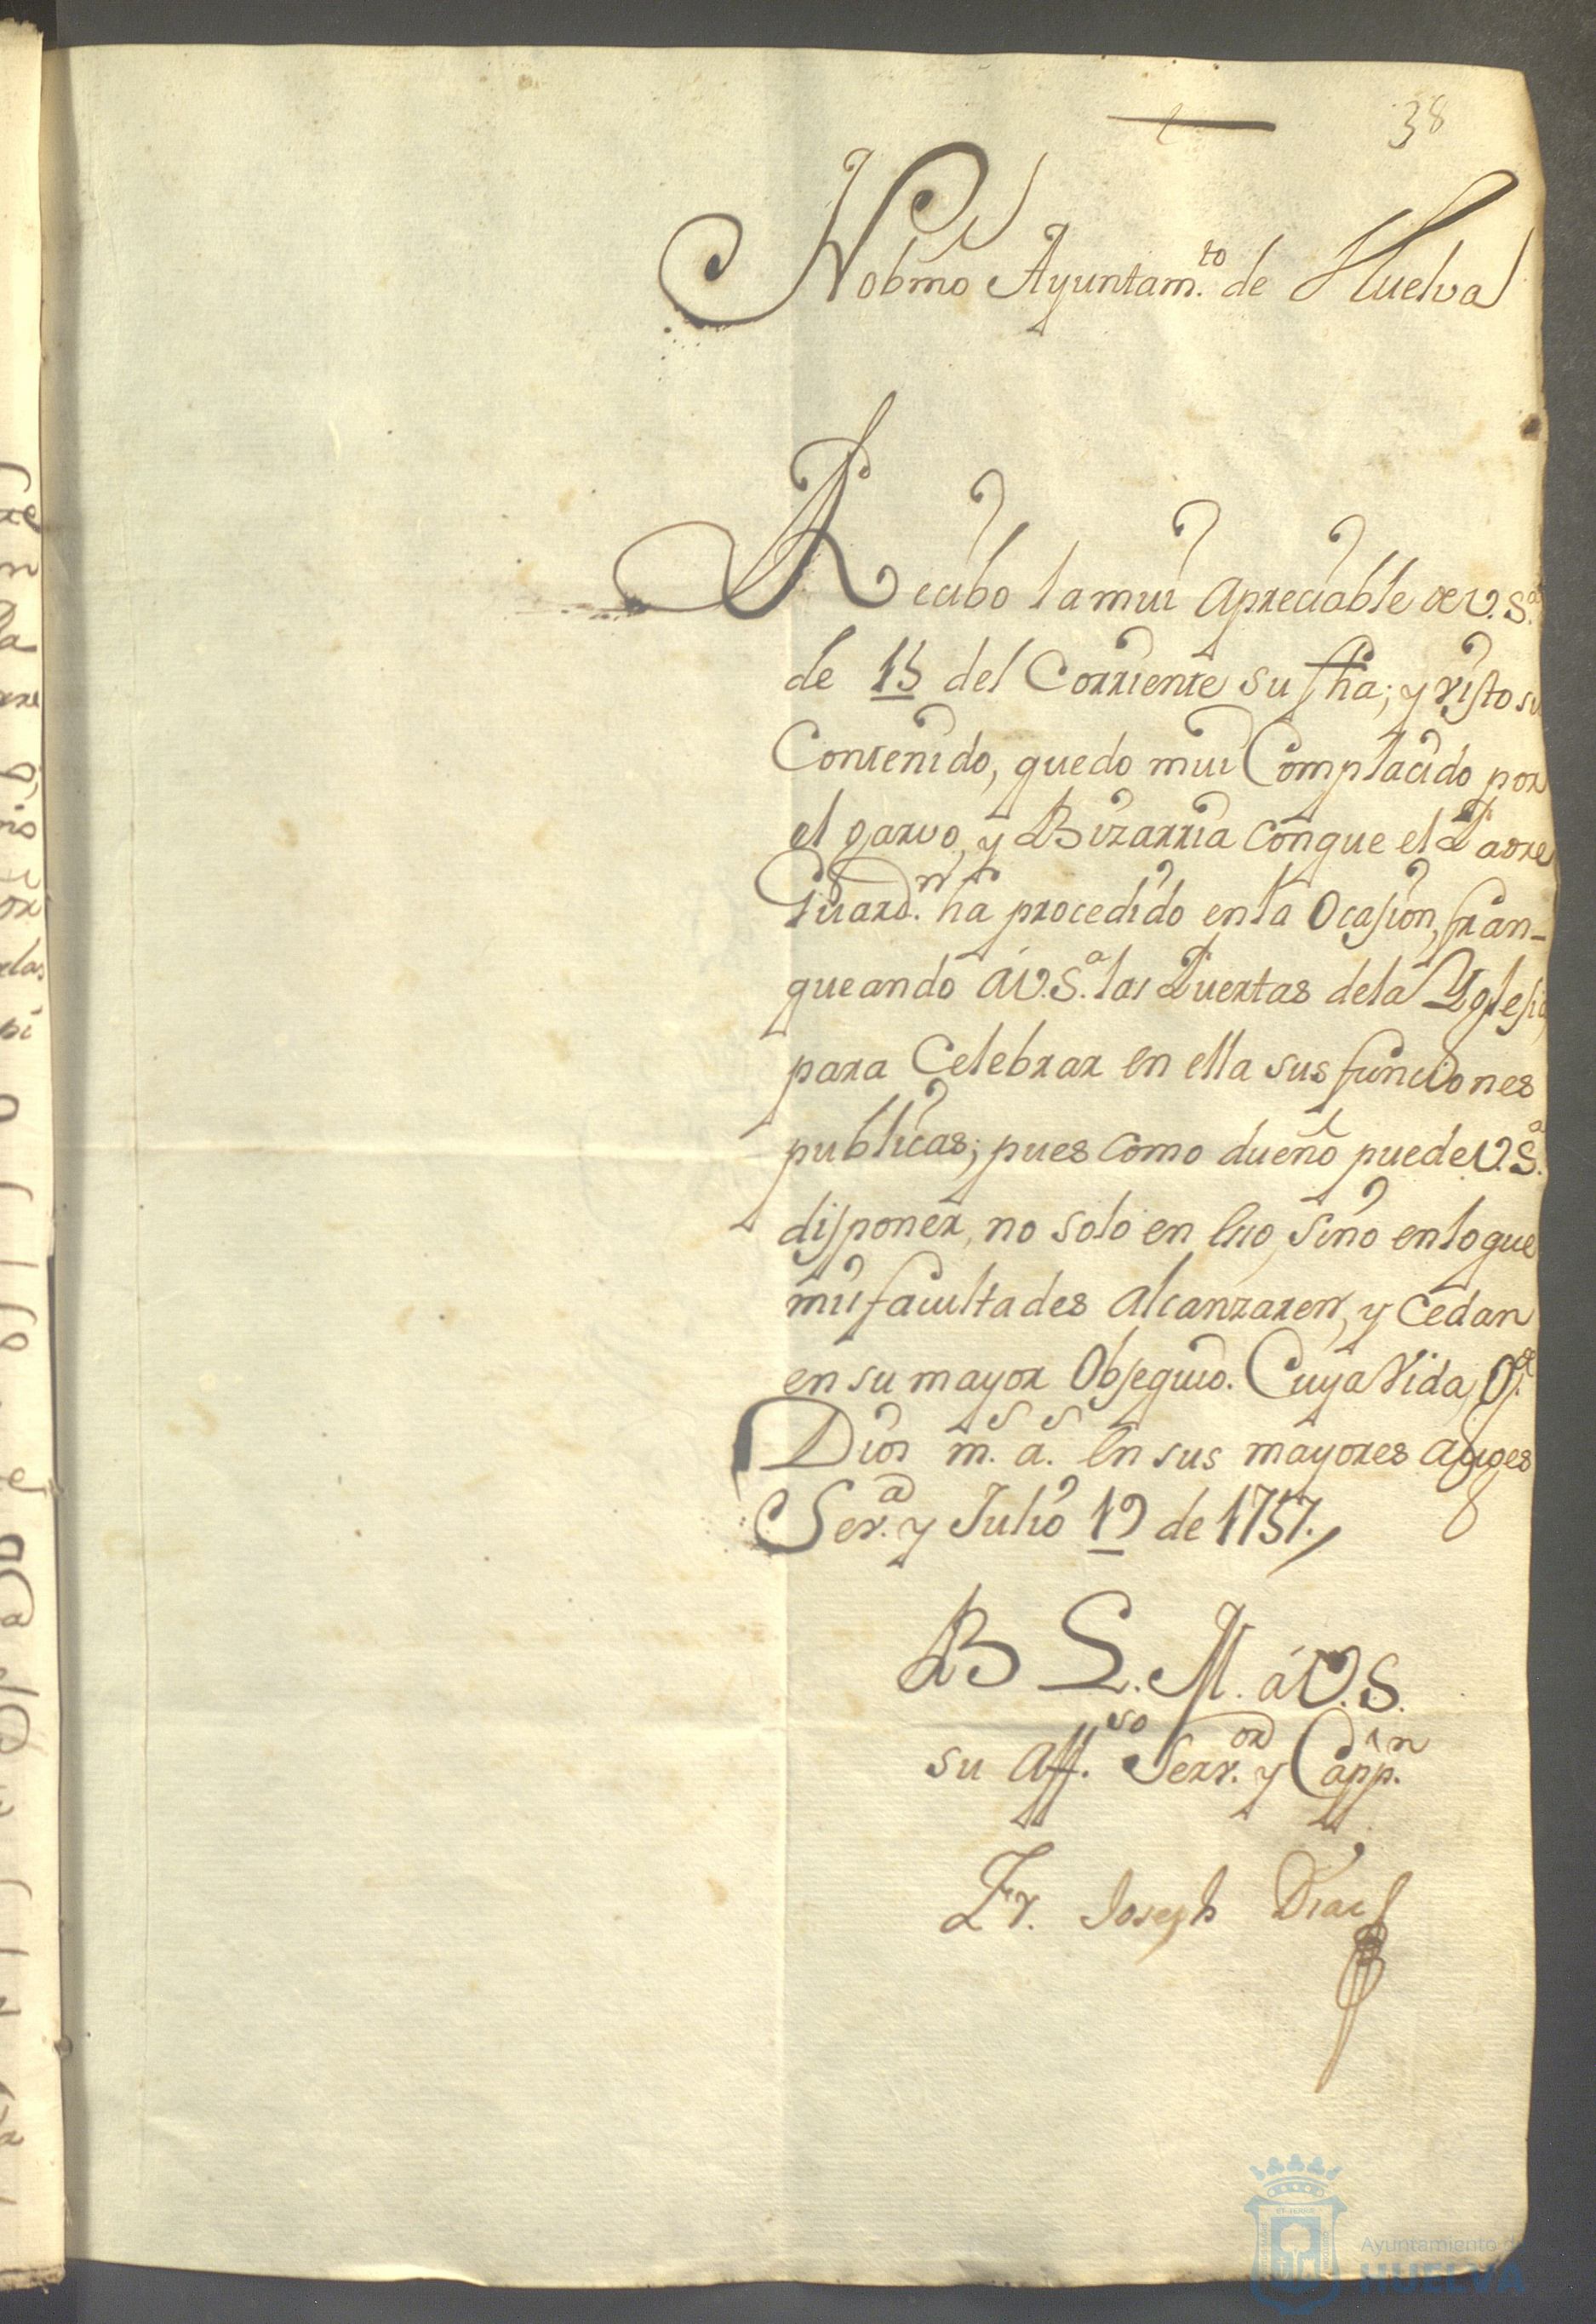 38
Nobmo Ayuntam.to de Huelva
Recibo la mui apreciable de V.S.a
de 15 del Corriente su fha; y visto su
Contenido, quedo mui Complacido por
el garvo, y Bizarria con que el Padre
Guard.n ha procedido en la Ocasion, fran-
queando à V.S.a las Puertas de la Yglesia,
para Celebrar en ella sus funciones
publicas; pues como dueño puede V.S.a
disponer, no solo en eso, sino en lo que
mis facultades alcanzaren, y Cedan
en su mayor Obsequio. Cuya Vida, g.e
Dios m.s a.s en sus mayores auges
Sev.a y Julio 19 de 1757.
B L. M. á V.S.
su Aff.so Serv.or y Capp.n
Fr. Joseph Diaz
Ayuntamiento de
HUELVA